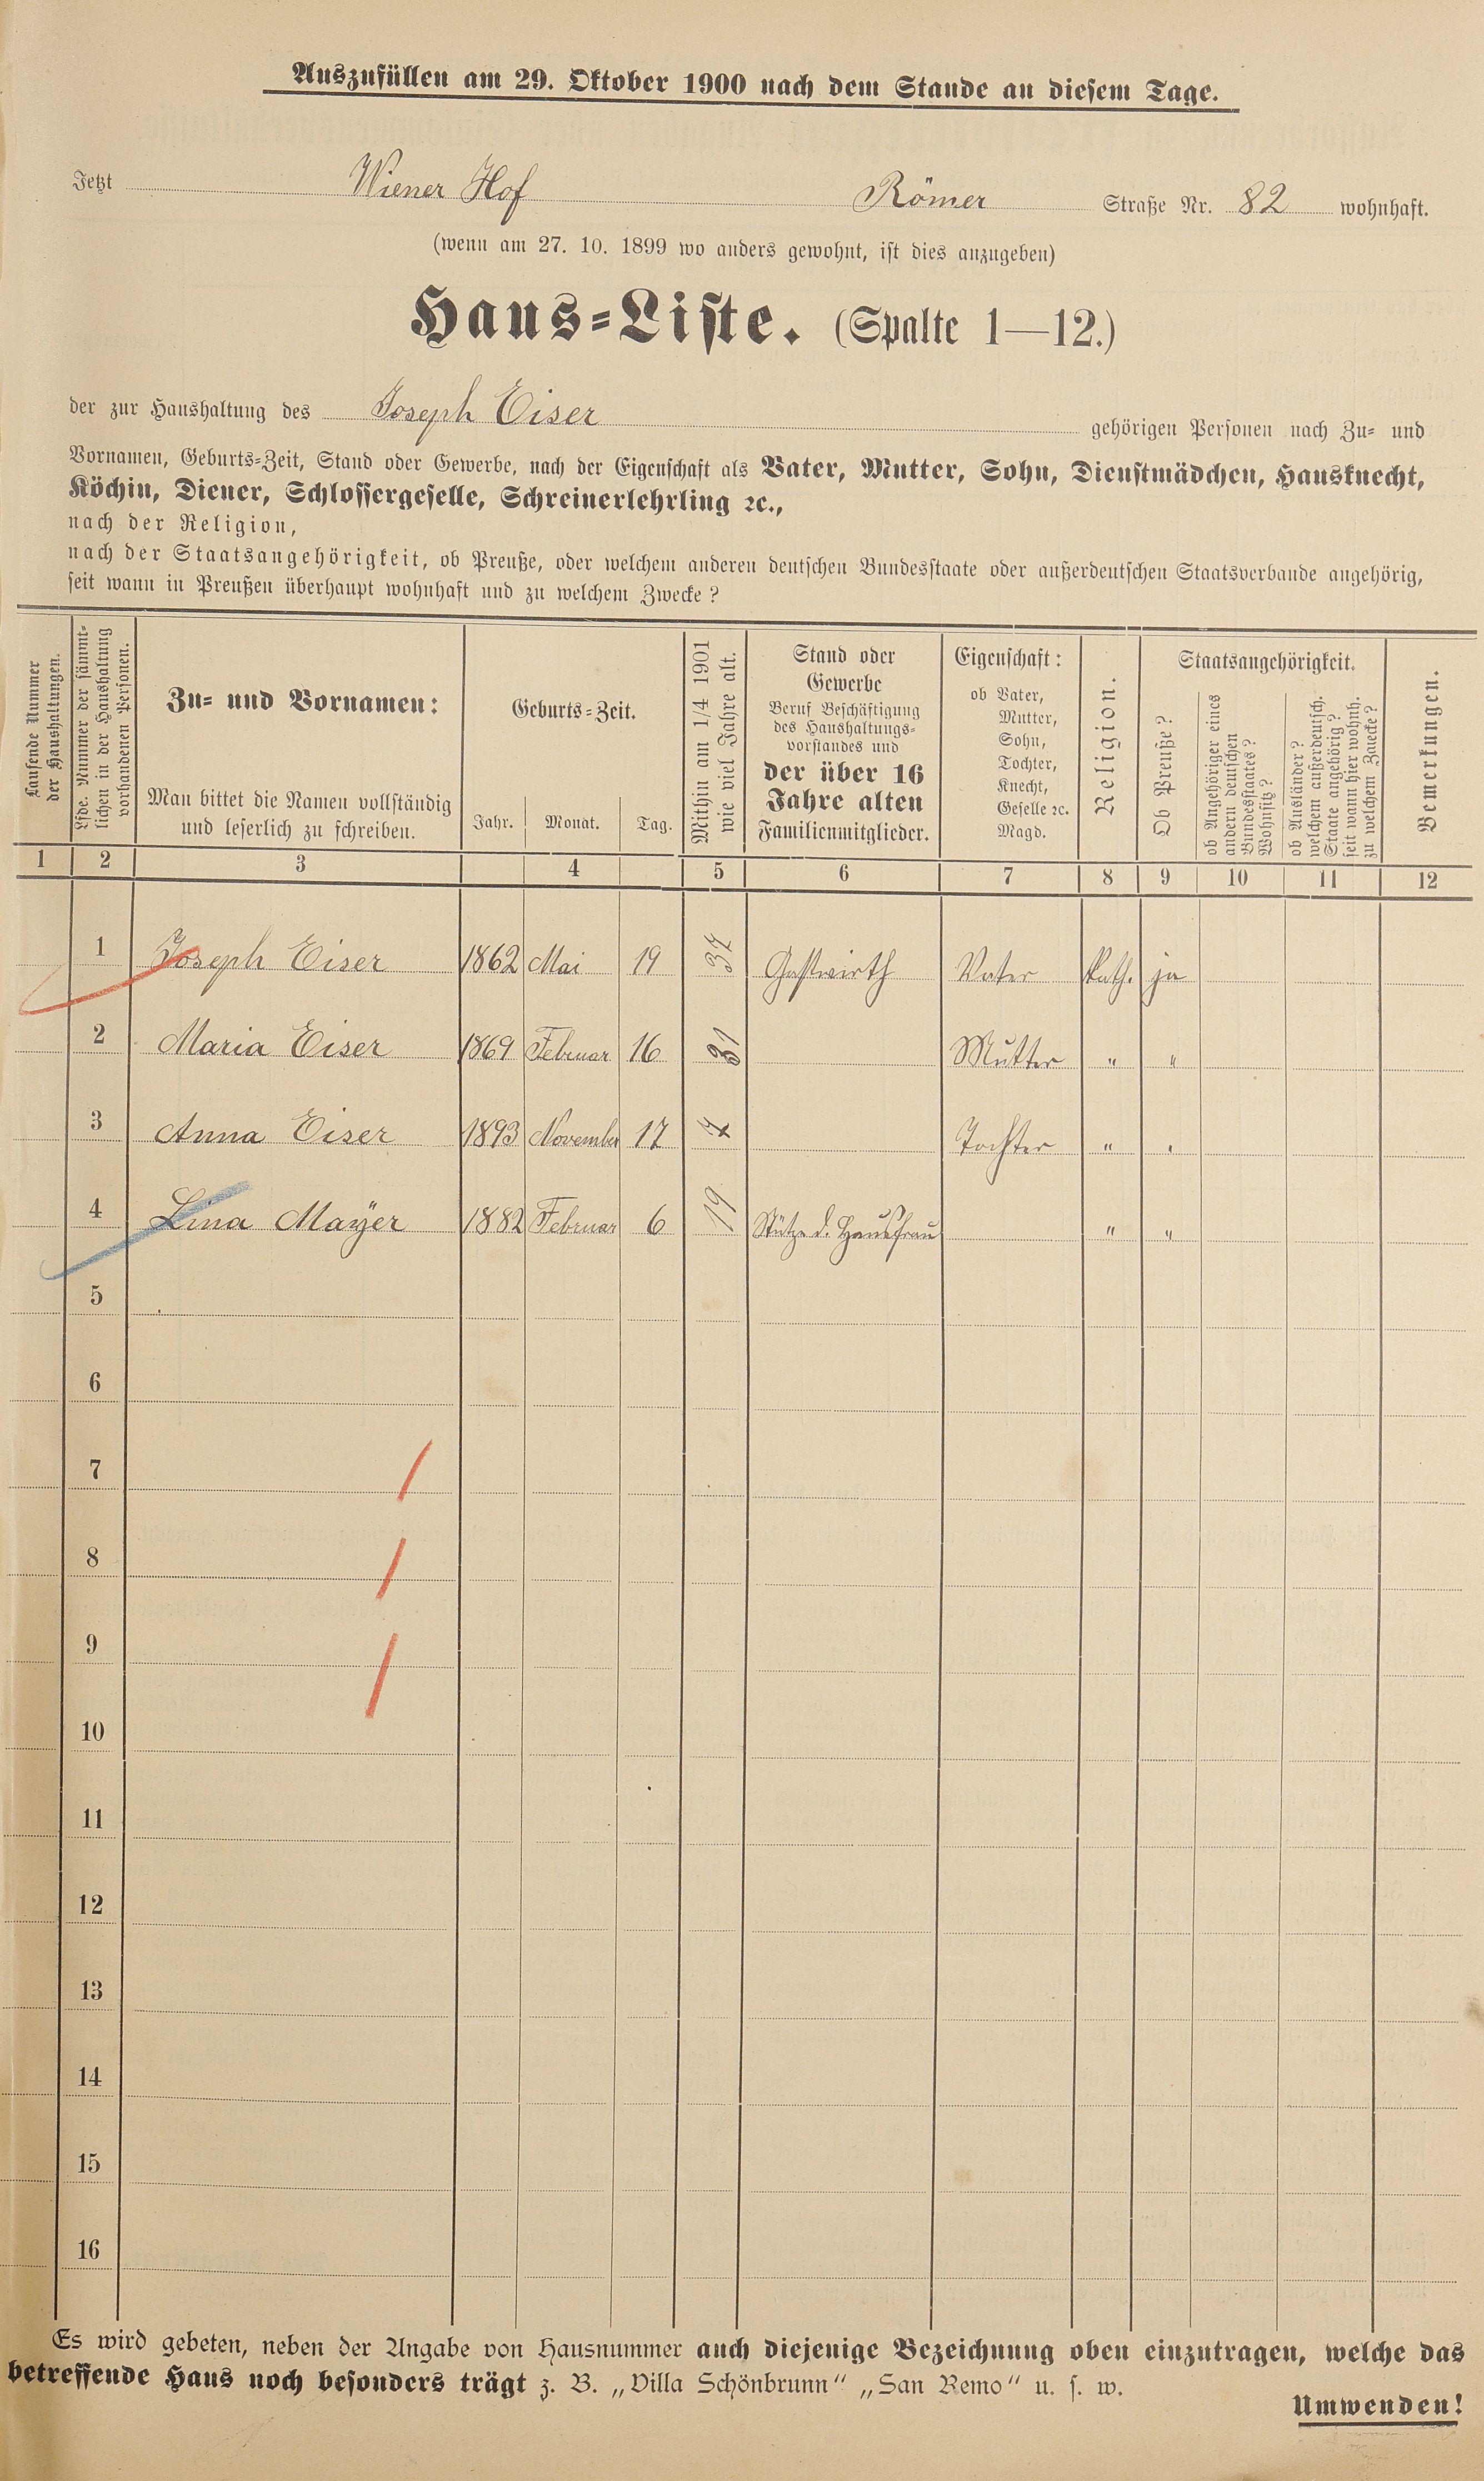 Auszufüllen am 29. Oktober 1900 nach dem Stande an diesem Tage.
Jetzt Wiener Hof Römer Straße Nr. 82 wohnhaft.
(wenn am 27. 10. 1899 wo anders gewohnt, ist dies anzugeben)
Haus-Liste. (Spalte 1—12.)
der zur Haushaltung des Joseph Eiser gehörigen Personen nach Zu- und
Vornamen, Geburts-Zeit, Stand oder Gewerbe, nach der Eigenschaft als Vater, Mutter, Sohn, Dienstmädchen, Hausknecht,
Köchin, Diener, Schlossergeselle, Schreinerlehrling ꝛc.,
nach der Religion,
nach der Staatsangehörigkeit, ob Preuße, oder welchem anderen deutschen Bundesstaate oder außerdeutschen Staatsverbande angehörig,
seit wann in Preußen überhaupt wohnhaft und zu welchem Zwecke?
Laufende Nummer
der Haushaltungen.
Lfde. Nummer der sämmt-
lichen in der Haushaltung
vorhandenen Personen.
Zu- und Vornamen:
Man bittet die Namen vollständig
und leserlich zu schreiben.
Geburts-Zeit.
Jahr. Monat. Tag.
Mithin am 1/4 1901
wie viel Jahre alt.
Stand oder
Gewerbe
Beruf Beschäftigung
des Haushaltungs-
vorstandes und
der über 16
Jahre alten
Familienmitglieder.
Eigenschaft:
ob Vater,
Mutter,
Sohn,
Tochter,
Knecht,
Geselle ꝛc.
Magd.
Religion.
Staatsangehörigkeit.
Ob Preuße?
ob Angehöriger eines
andern deutschen
Bundesstaates?
Wohnsitz?
ob Ausländer?
welchem außerdeutsch.
Staate angehörig?
seit wann hier wohnh.
zu welchem Zwecke?
Bemerkungen.
1 2 3 4 5 6 7 8 9 10 11 12
1 Joseph Eiser 1862 Mai 19 Gastwirth Vater Kath. ja
2 Maria Eiser 1869 Februar 16 31 Mutter " "
3 Anna Eiser 1893 November 17 7 Tochter " "
4 Lina Mayer 1882 Februar 6 19 Stütze d. Hausfrau " "
5
6
7
8
9
10
11
12
13
14
15
16
Es wird gebeten, neben der Angabe von Hausnummer auch diejenige Bezeichnung oben einzutragen, welche das
betreffende Haus noch besonders trägt z. B. „Villa Schönbrunn" „San Remo" u. s. w.
Umwenden!